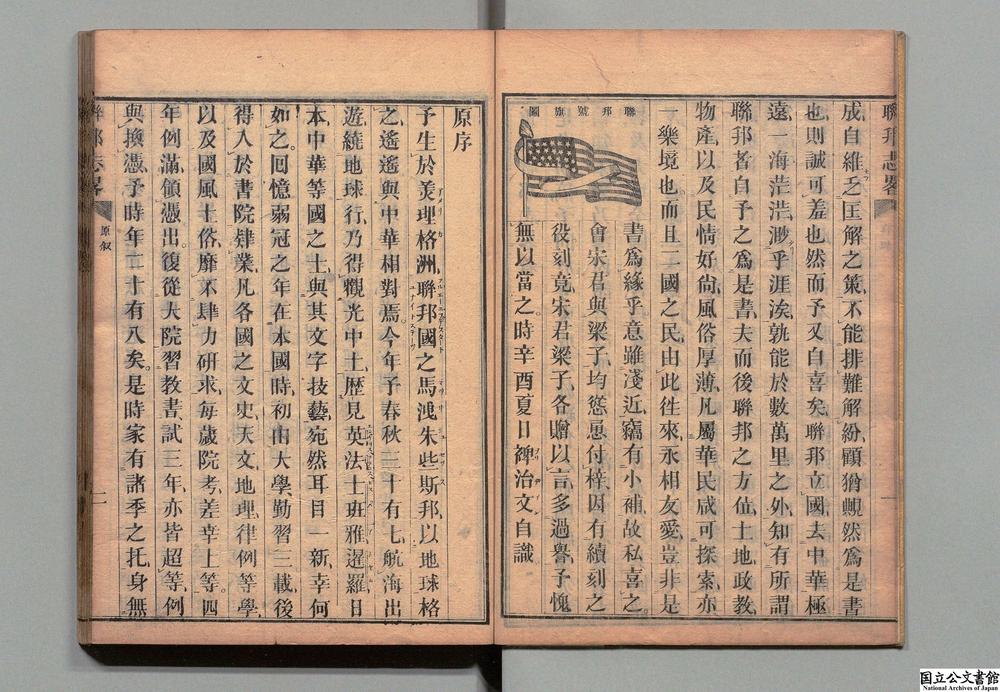 聯邦志畧
成自維乏匡解之策不能排難解紛顧猶覥然爲是書
也則誠可羞也然而予又自喜矣聯邦立國去中華極
遠一海茫茫渺乎涯涘孰能於數萬里之外知有所謂
聯邦者自予之爲是書夫而後聯邦之方位土地政教
物產以及民情好尙風俗厚薄凡屬華民咸可探索亦
一樂境也而且二國之民由此徃來永相友愛豈非是
聯邦號旗圖
書爲緣乎意雖淺近竊有小補故私喜之
會宋君與梁子均慫恿付梓因有續刻之
役刻竟宋君梁子各贈以言多過譽予愧
無以當之時辛酉夏日裨治文自識
原序
予生於美理格洲聯邦國之馬洩朱些斯邦以地球格
之遙遙與中華相對焉今年予春秋三十有七航海出
遊繞地球行乃得觀光中土歷見英法士班雅暹羅日
本中華等國之士與其文字技藝宛然耳目一新幸何
如之囘憶弱冠之年在本國時初由大學勤習三載後
得入於書院肄業凡各國之文史天文地理律例等學
以及國風土俗靡不肆力硏求每歲院考差幸上等四
年例滿領憑出復從大院習教書試三年亦皆超等例
與換憑予時年二十有八矣是時家有諸季之托身無
聯邦志畧
原叙
一
二
国立公文書館
National Archives of Japan